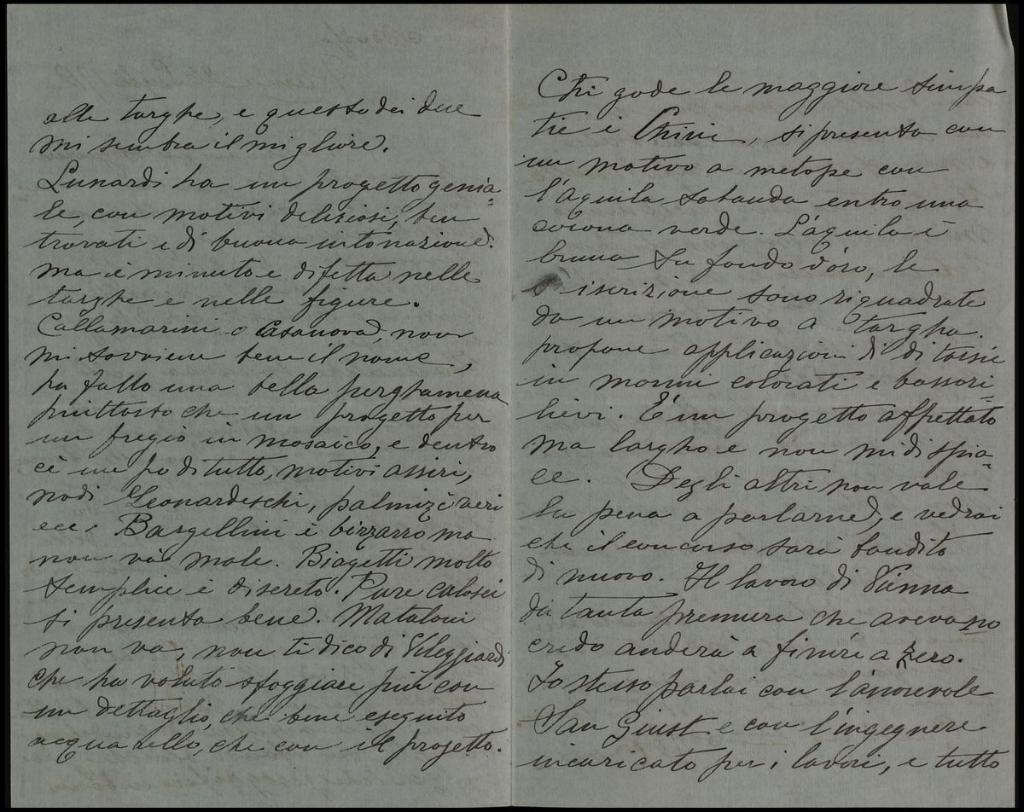 alle targhe, e questo dei due
mi sembra il migliore.
Lunardi ha un progetto genia=
le, con motivi deliziosi, ben
trovati e di buona intonazione.
ma è minuto e difetta nelle
targhe e nelle figure.
Callamarini o Casanova, non
mi sovviene bene il nome,
ha fatto una bella perghamena
piuttosto che un progetto per
un fregio in mosaico, e dentro
c'è un po di tutto, motivi assiri,
nodi Leonardeschi, palmizi
ecc. Bargellini è bizzarro ma
non và male. Biagetti molto
semplice e discreto. Pure
si presenta bene. Mataloni
non va, non ti dico di Vileggiardi
che ha voluto sfoggiare più con
un dettaglio, che bene eseguito
acquarello, che con il progetto.
Chi gode le maggiore simpa
tie è Chini, si presenta con
un motivo a metope con
l'aquila sabauda entro una
corona verde. L'aquila è
bruna su fondo d'oro, le
iscrizione sono riquadrate
da un motivo a targha.
propone applicazioni di di
in marmi colorati e bassori=
lievi. È un progetto affrettato
ma largho e non mi dispia=
ce. Degli altri non vale
la pena a parlarne, e vedrai
che il concorso sarà bandito
di nuovo. Il lavoro di Vanna
da tanta premura che avevano
credo anderà a finire a zero.
Io stesso parlai con l'onorevole
San Giust e con l'ingegnere
incaricato per i lavori, e tutto